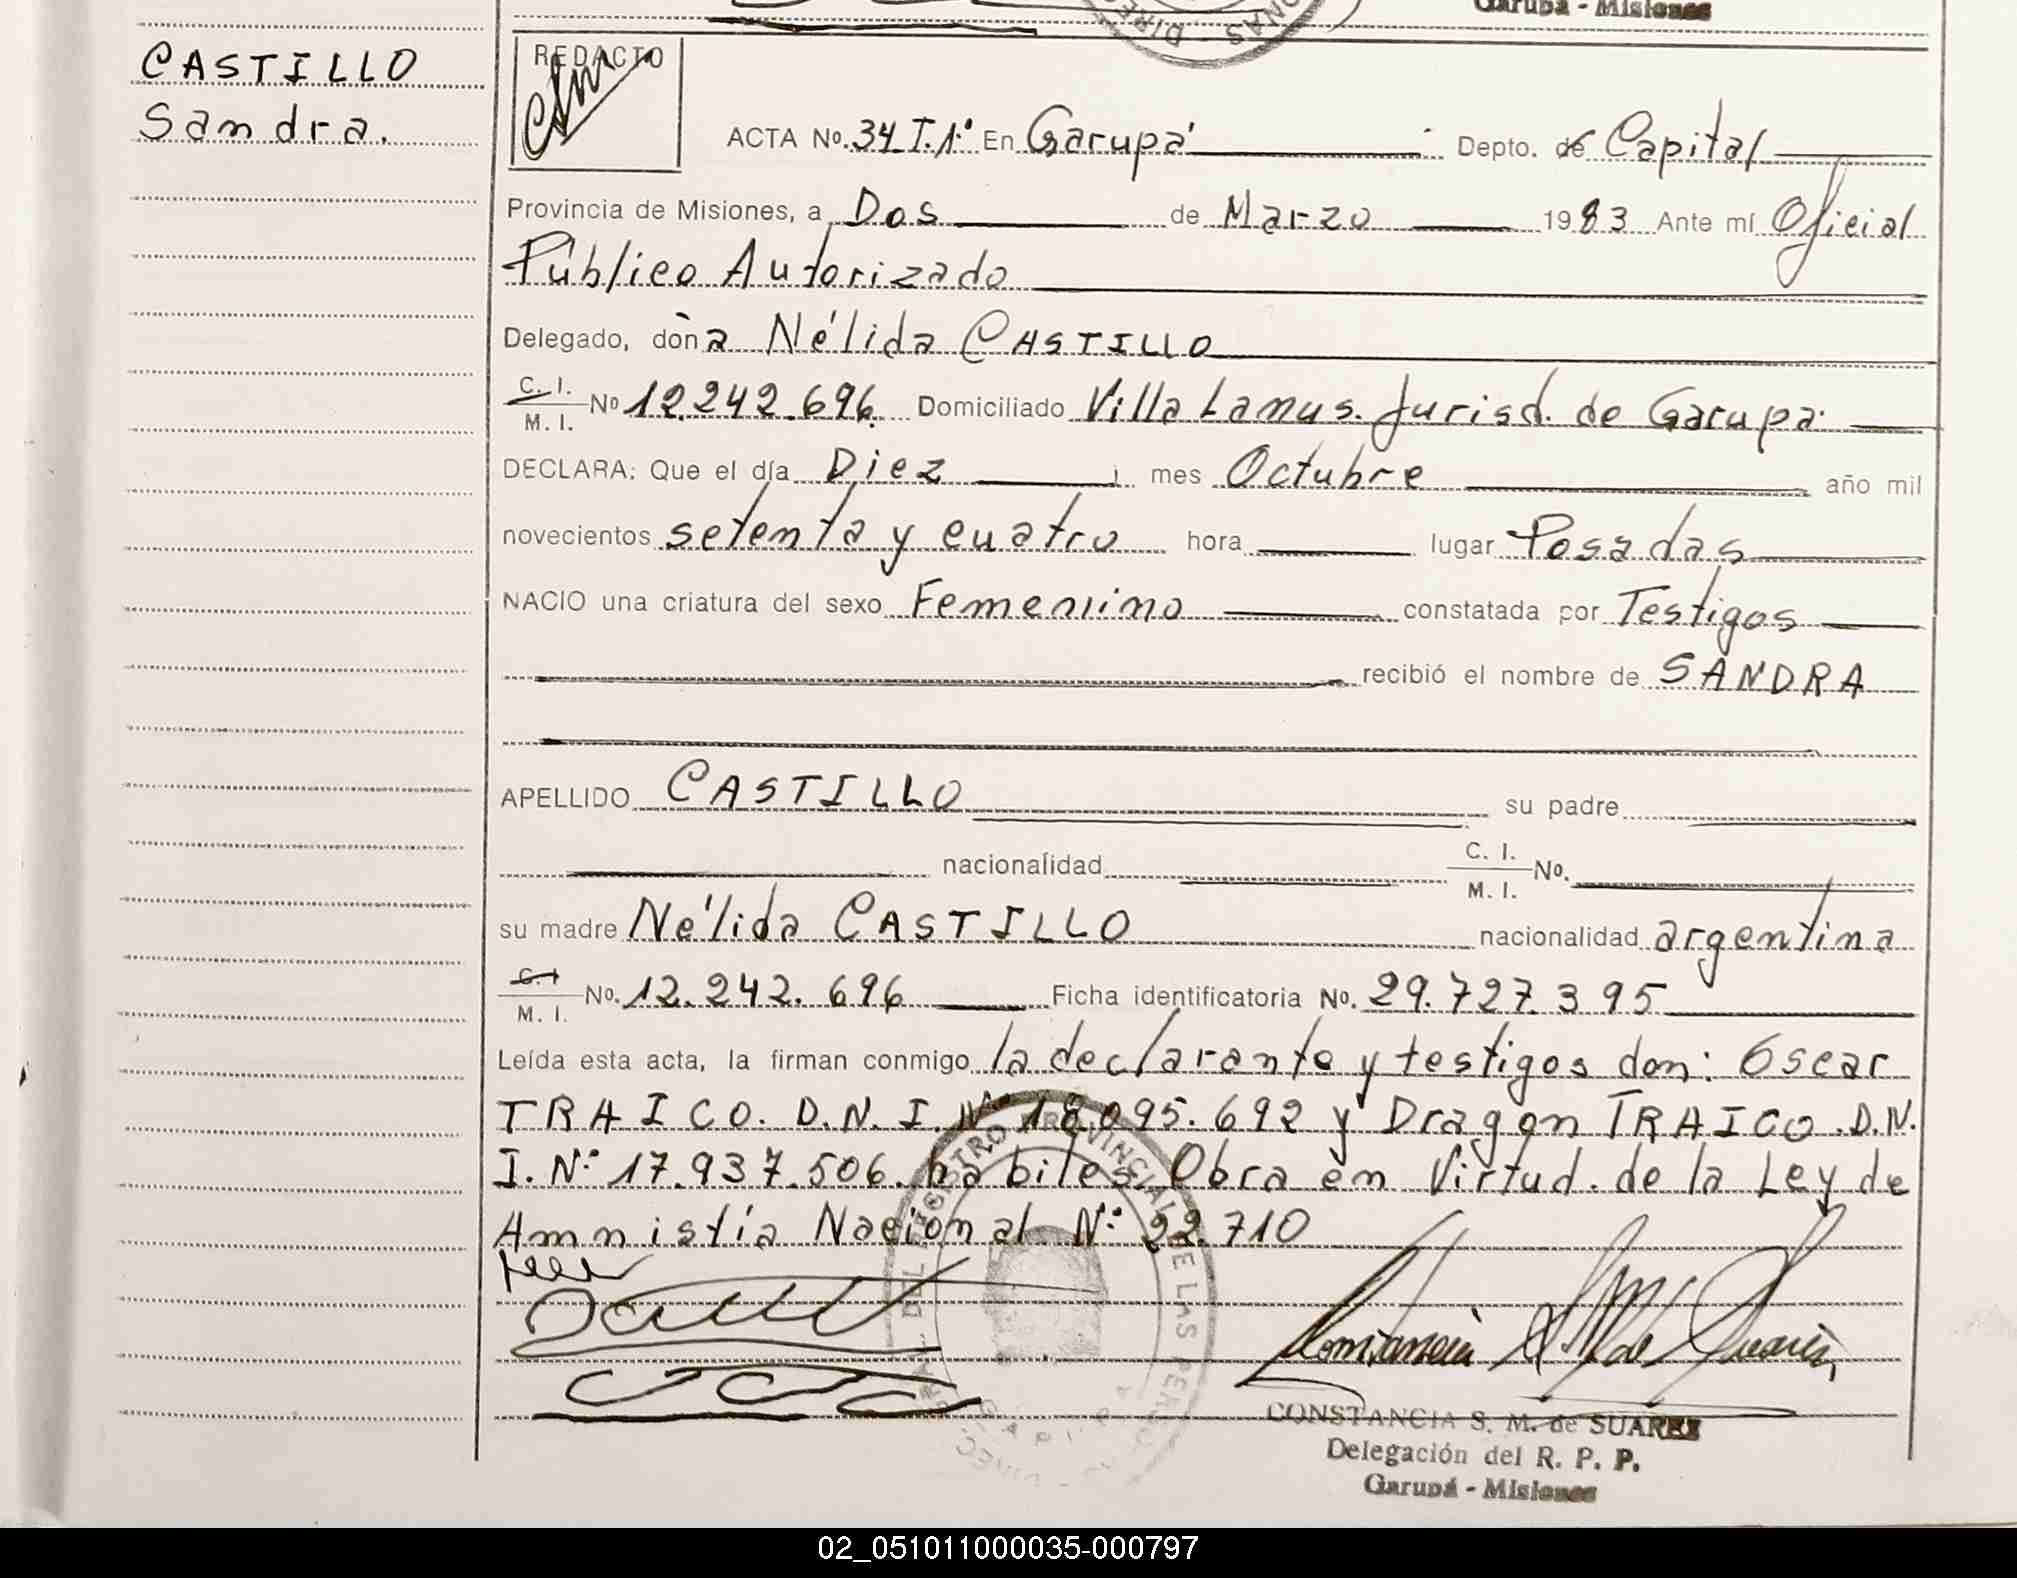 Garupá - Misiones
CASTILLO
Sandra.
REDACTO
ACTA No. 34 T.1º En Garupá Depto. de Capital
Provincia de Misiones, a Dos de Marzo 1983 Ante mí Oficial
Público Autorizado
Delegado, doña Nélida CASTILLO
C. I.
M. I. No 12.242.696. Domiciliado Villa Lanus. Jurisd. de Garupá
DECLARA: Que el día Diez mes Octubre año mil
novecientos setenta y cuatro hora lugar Posadas
NACIO una criatura del sexo Femenino constatada por Testigos
recibió el nombre de SANDRA
APELLIDO CASTILLO su padre
nacionalidad C. I.
M. I. No.
su madre Nélida CASTILLO nacionalidad argentina
C. I
M. I. No. 12.242.696 Ficha identificatoria No. 29.727.395
Leída esta acta, la firman conmigo la declarante y testigos don: Oscar
TRAICO. D.N.I. Nº 18.095.692 y Dragan TRAICO. D.N.
I. Nº 17.937.506. habiles. Obra en Virtud. de la Ley de
Amnistía Nacional Nº 22.710
CONSTANCIA S. M. de SUAREZ
Delegación del R. P. P.
Garupá - Misiones
02_051011000035-000797